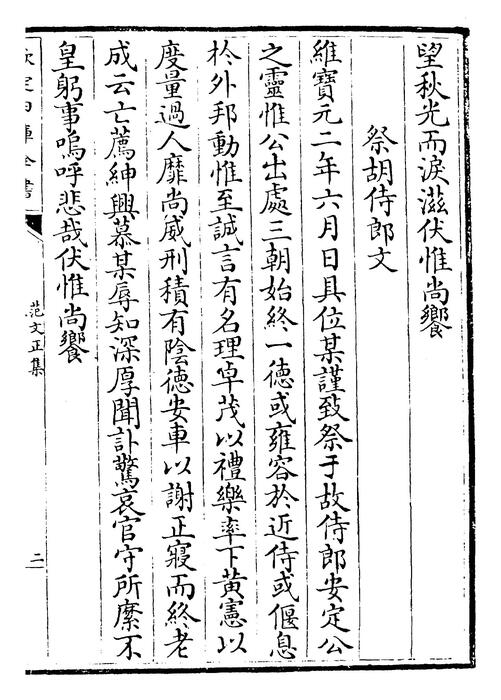 望秋光而淚滋伏惟尚饗
祭胡侍郎文
維寳元二年六月日具位某謹致祭于故侍郎安定公
之靈惟公出處三朝始終一德或雍容於近侍或偃息
於外邦動惟至誠言有名理卓茂以禮樂率下黄憲以
度量過人靡尚威刑積有隂德安車以謝正寢而終老
成云亡薦紳興慕某辱知深厚聞訃驚哀官守所縻不
皇躬事嗚呼悲哉伏惟尚饗
欽定四庫全書
范文正集
二